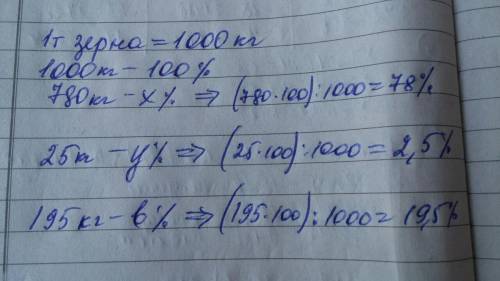 1т зерна = 1000 кг
1000кг - 100%
780кг - х% ⇒ (780·100):1000 = 78%
25кг - у% ⇒ (25·100):1000 = 2,5%
195кг - в% ⇒ (195·100):1000 = 19,5%